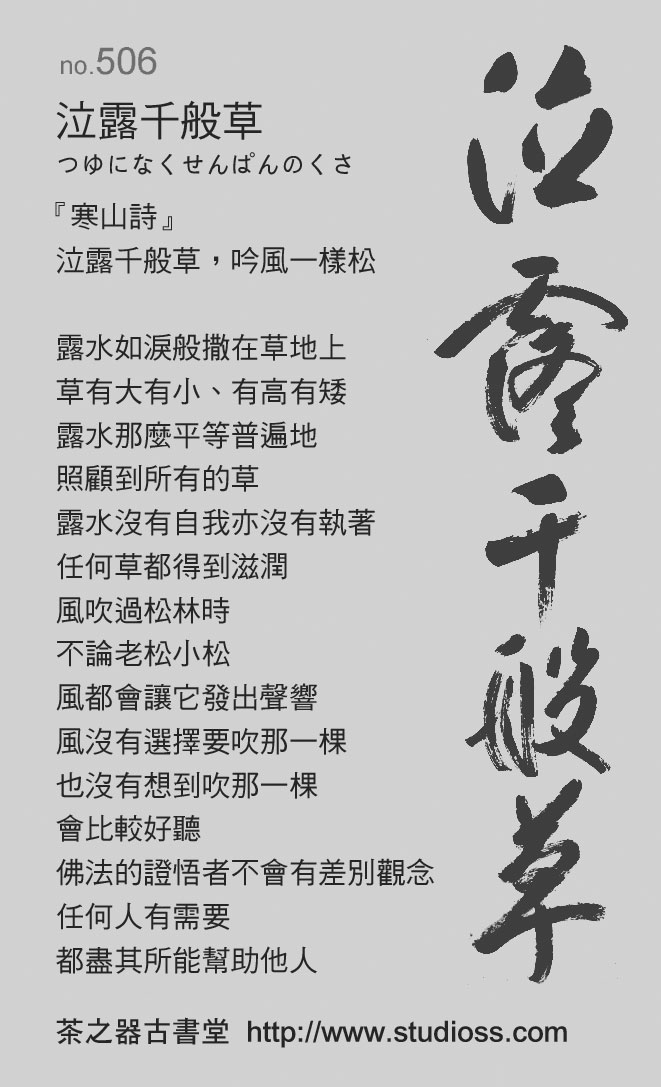 no.506
泣露千般草
つゆになくせんぱんのくさ
『寒山詩』
泣露千般草，吟風一樣松
露水如淚般撒在草地上
草有大有小、有高有矮
露水那麼平等普遍地
照顧到所有的草
露水沒有自我亦沒有執著
任何草都得到滋潤
風吹過松林時
不論老松小松
風都會讓它發出聲響
風沒有選擇要吹那一棵
也沒有想到吹那一棵
會比較好聽
佛法的證悟者不會有差別觀念
任何人有需要
都盡其所能幫助他人
茶之器古書堂 http://www.studioss.com
泣露千般草